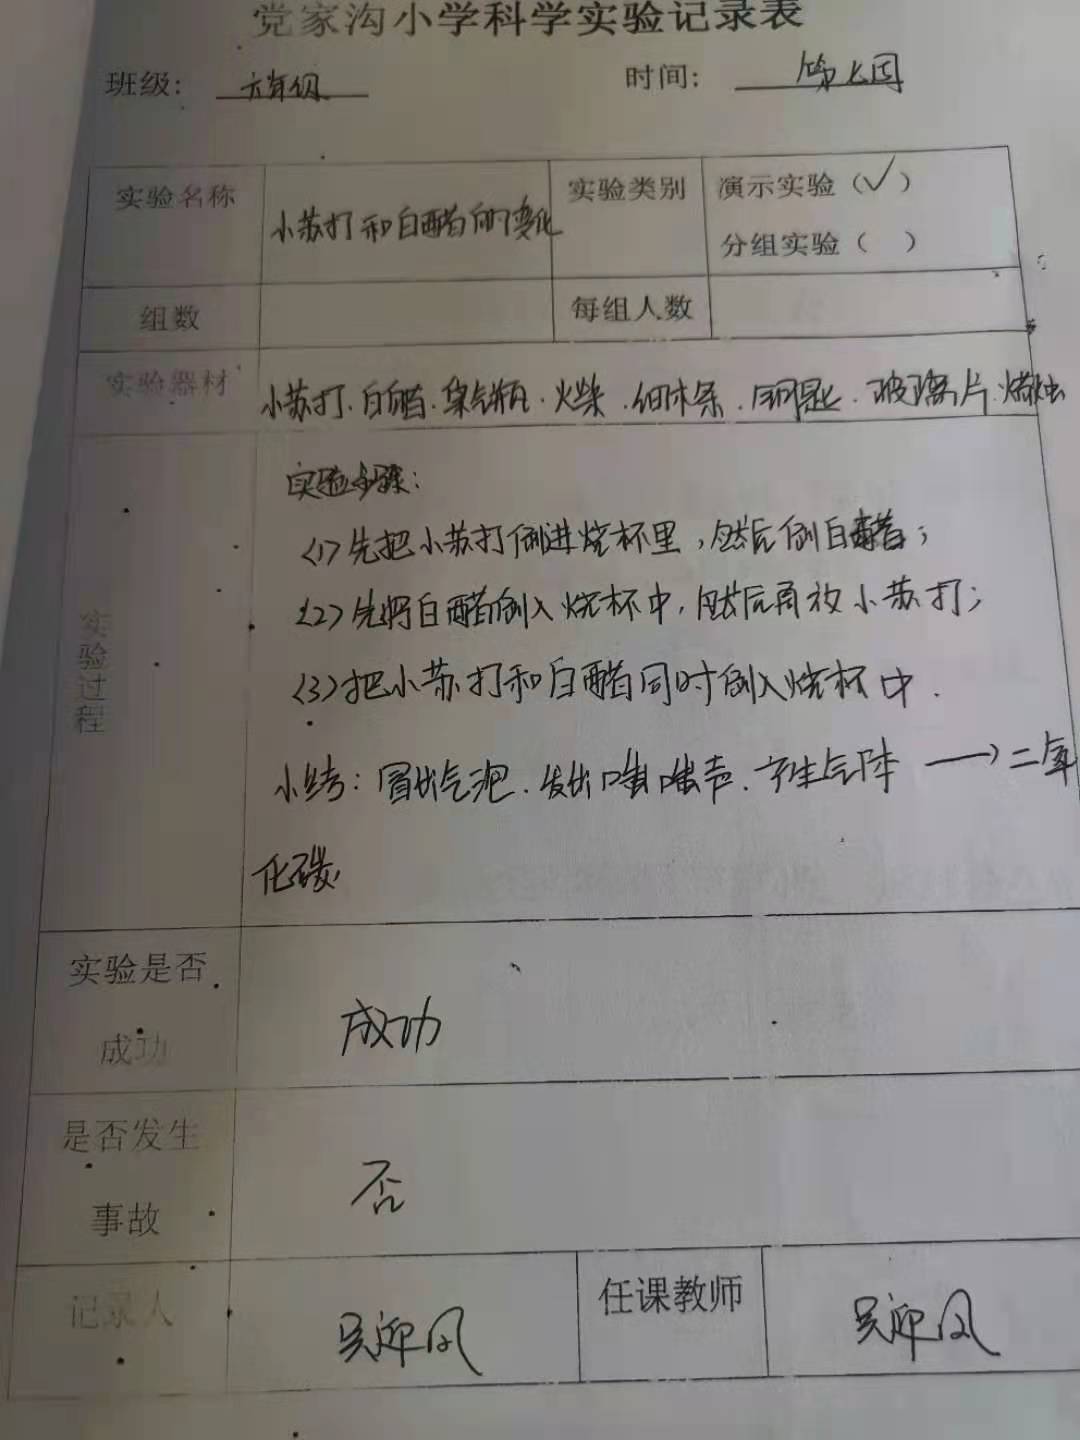 党家沟小学科学实验记录表
班级: 六年级 时间: 第七周
实验名称 小苏打和白醋的变化 实验类别 演示实验（✓）
分组实验（ ）
组数 每组人数
实验器材 小苏打.白醋.集气瓶.火柴.细木条.钥匙.玻璃片.蜡烛
实验过程
实验步骤:
<1>先把小苏打倒进烧杯里,然后倒白醋;
<2>先将白醋倒入烧杯中,然后再放小苏打;
<3>把小苏打和白醋同时倒入烧杯中.
小结: 冒出气泡.发出嗤嗤声.产生气体 →二氧
化碳
实验是否
成功 成功
是否发生
事故 否
记录人 吴迎风 任课教师 吴迎风